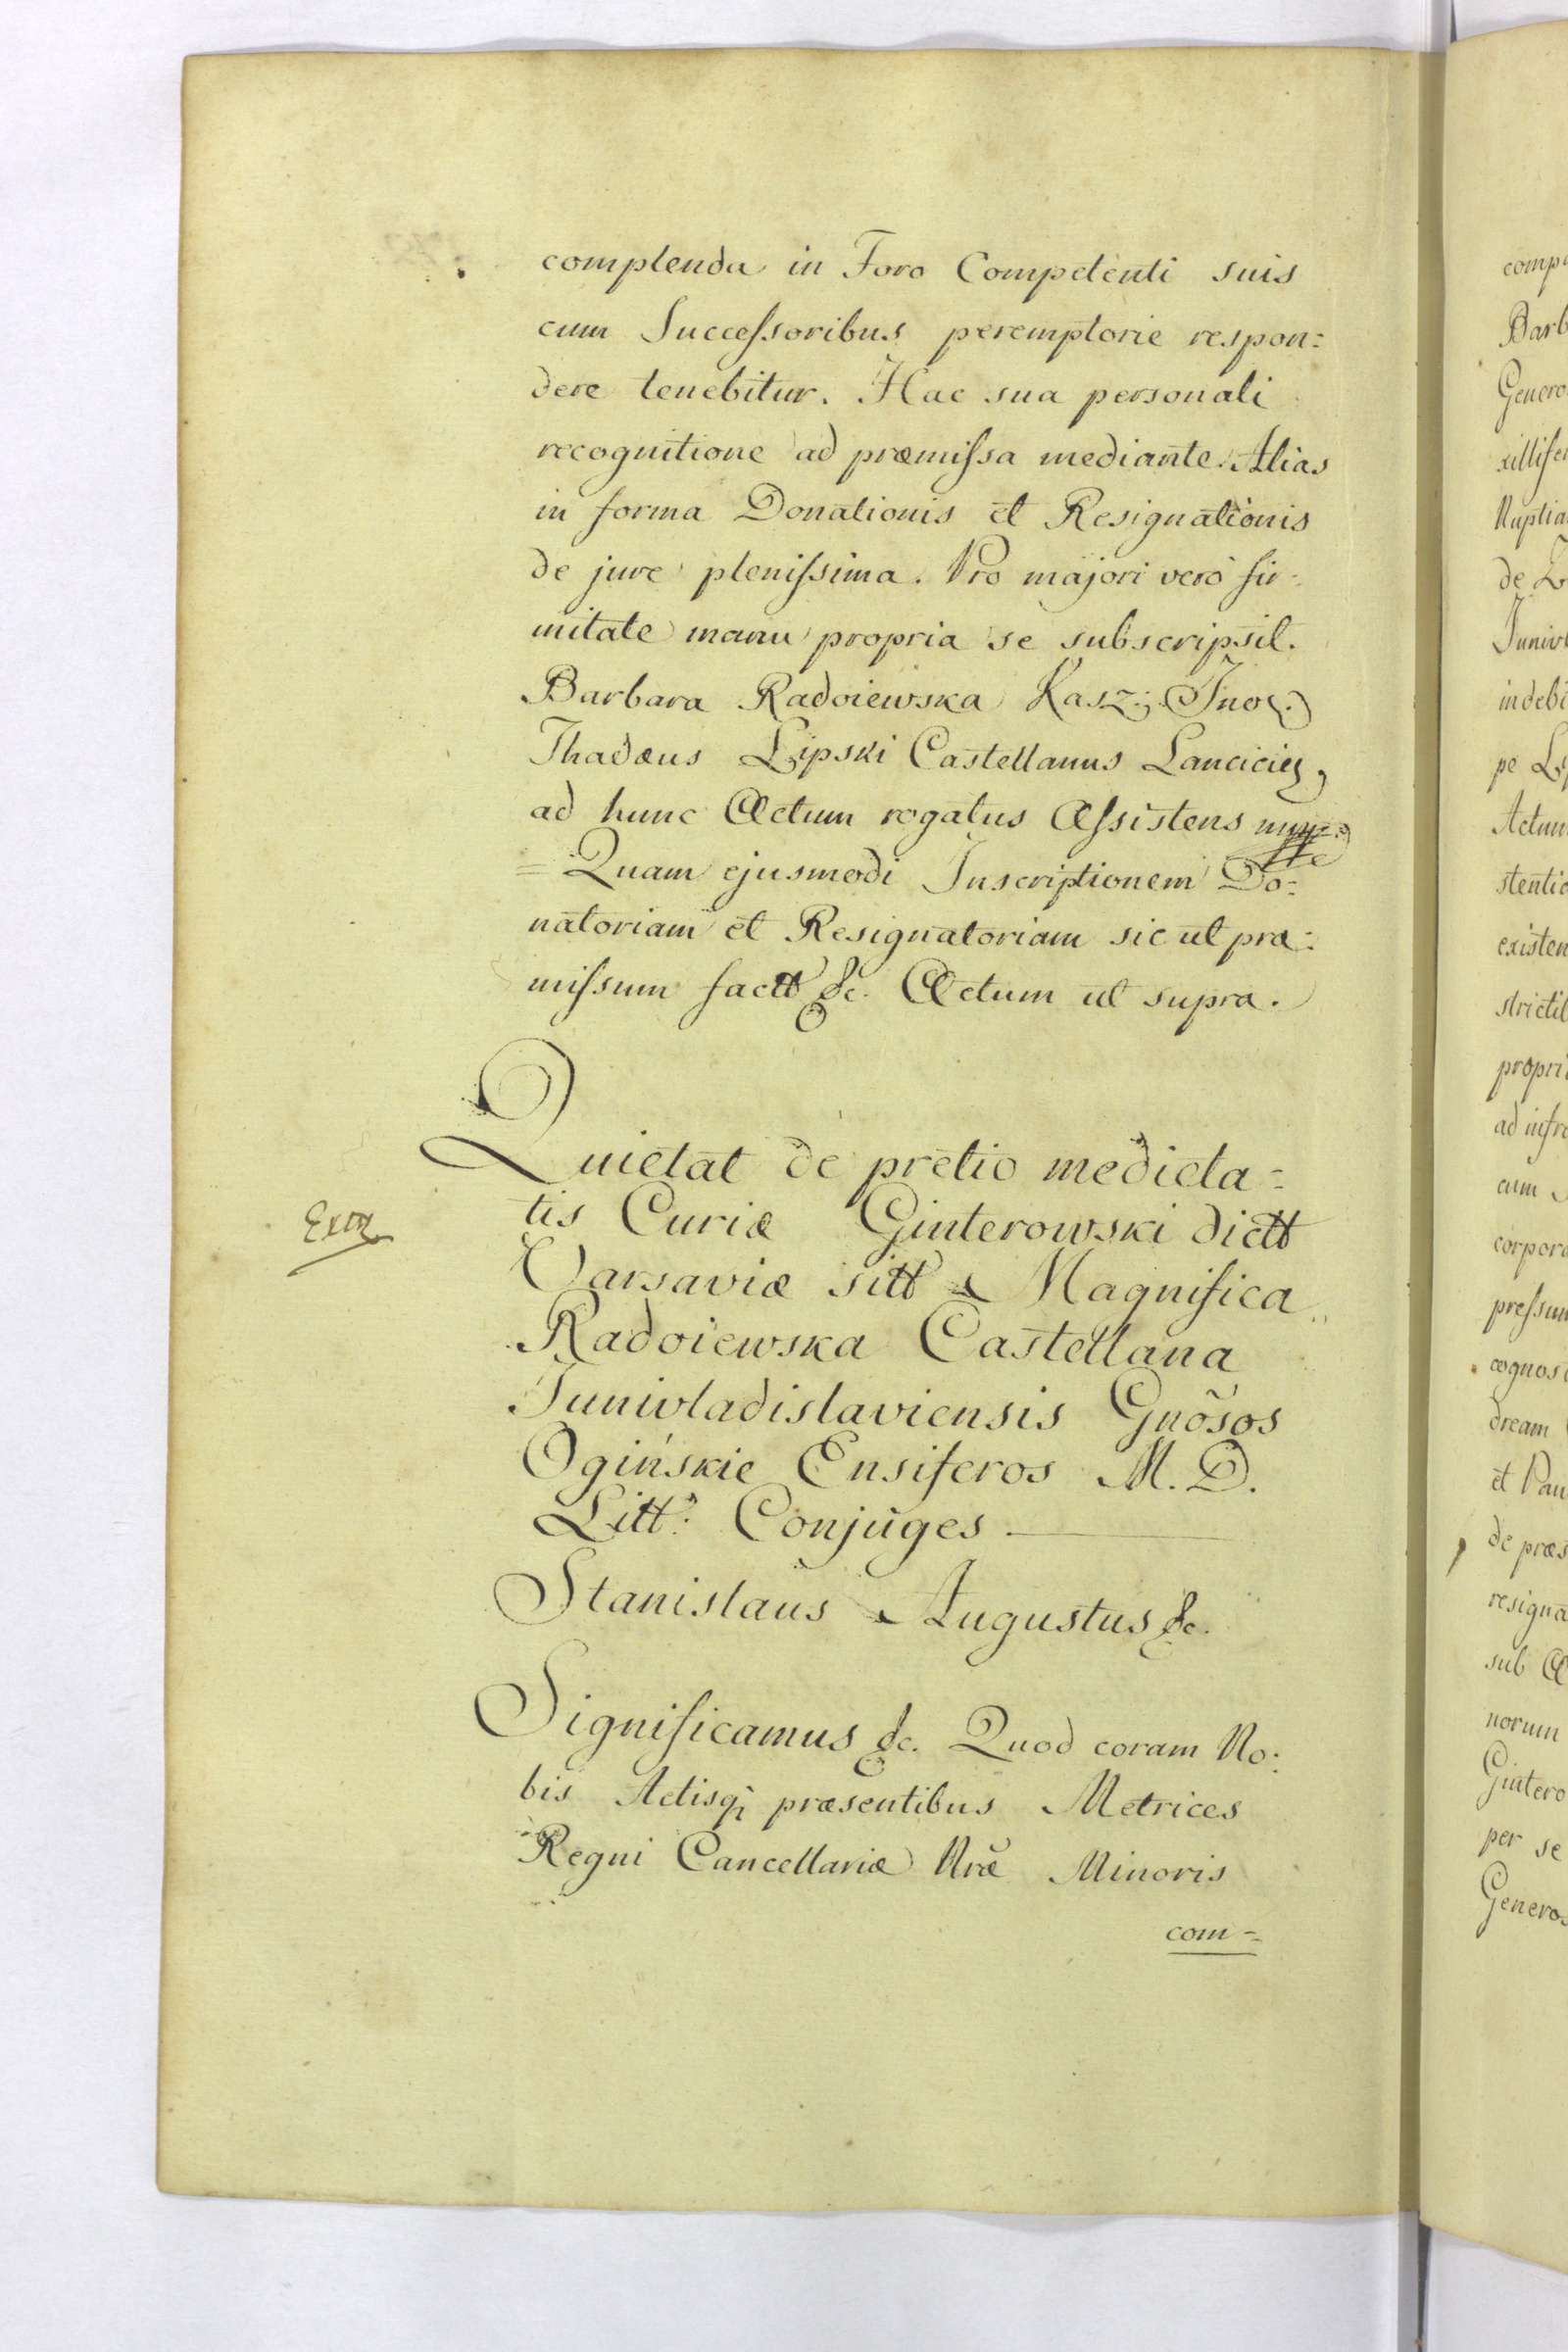 complenda in Foro Competenti suis
cum Successoribus peremptorie respon:
dere tenebitur. Hac sua personali
recognitione ad præmissa mediante. Alias
in forma Donationis et Resignationis
de jure plenissima. Pro majori vero fir-
mitate manu propria se subscripsit.
Barbara Radoiewska Kasz: Ino:
Thadæus Lipski Castellanus Lancicien,
ad hunc Actum rogatus Assistens mpp
= Quam ejusmodi Inscriptionem Do:
natoriam et Resignatoriam sic ut præ:
missum factt &c. Actum ut supra.
Quietat de pretio medieta=
tis Curiæ Ginterowski dictt
Extr
Varsaviæ sitt Magnifica
Radoiewska Castellana
Junivladislaviensis Gnosos
Ogińskie Ensiferos M. D.
Litt: Conjuges
Stanislaus Augustus &c.
Significamus &c. Quod coram No:
bis Actisq præsentibus Metrices
Regni Cancellariæ Nræ Minoris
com=
comp
Barb
Genero
xillifer
Nuptia
de
Junivl
indebi
pe Li
Actum
stentic
existen
strictil
propri
ad infra
cum
corpora
pressum
cognos
dream
et Pau
de præs
resigna
sub
norum
Gintero
per se
Generos